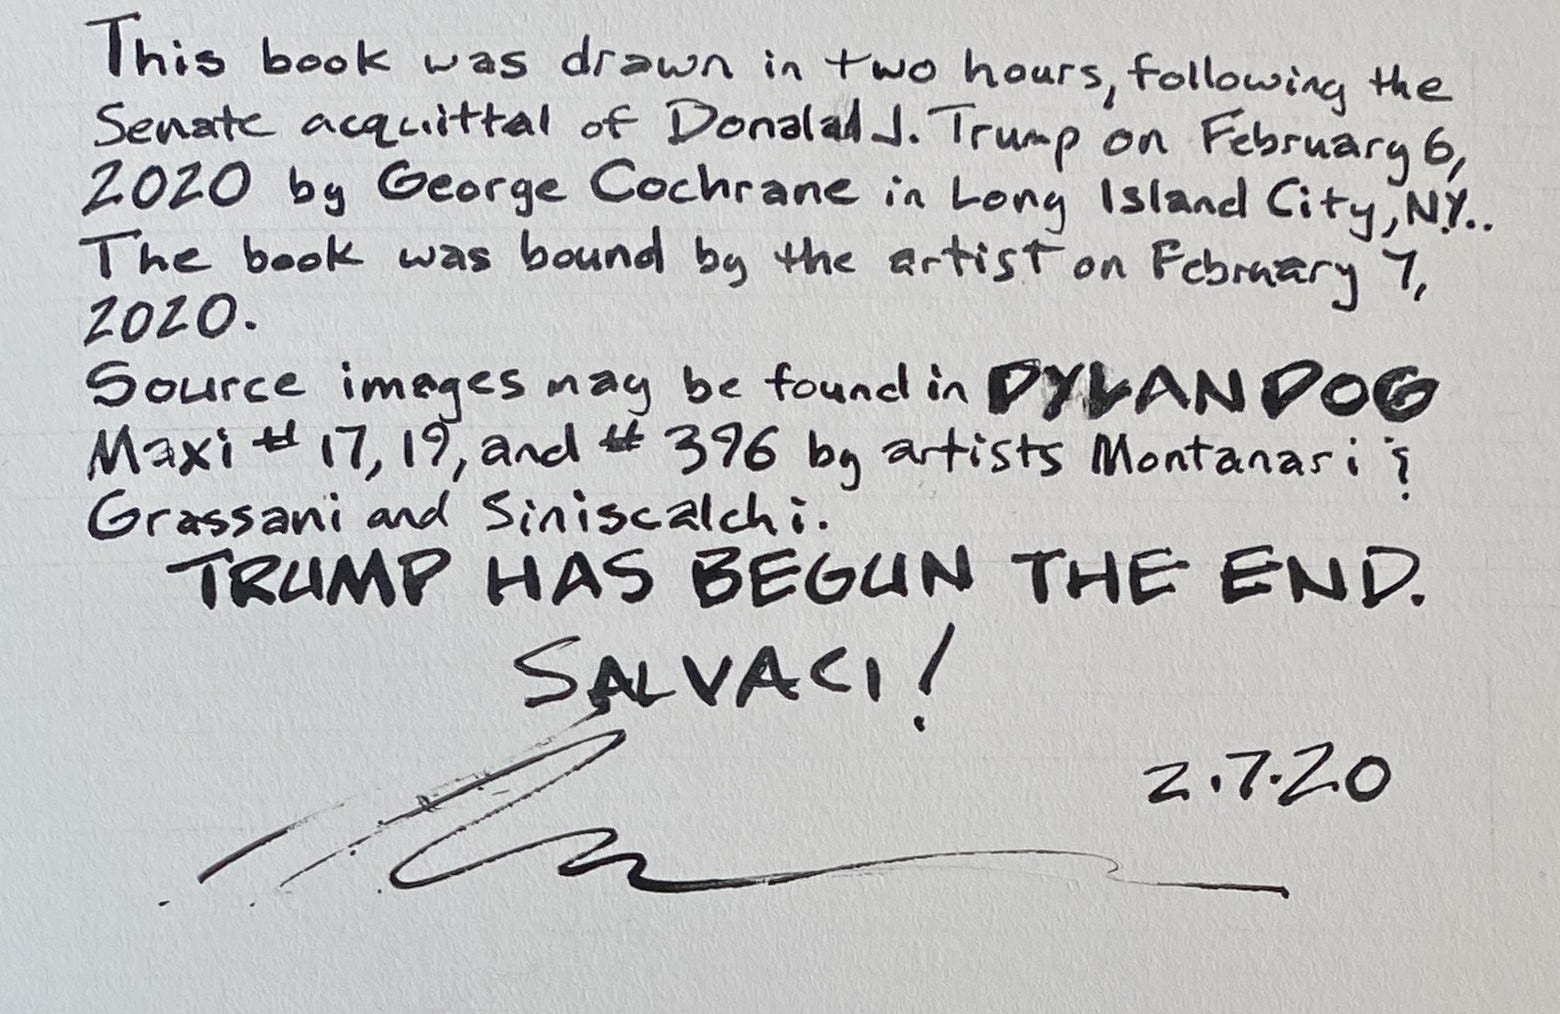 This book was drawn in two hours, following the
Senate acquittal of Donalad J. Trump on February 6,
2020 by George Cochrane in Long Island City, NY..
The book was bound by the artist on February 7,
2020.
Source images may be found in DYLAN DOG
Maxi # 17, 19, and # 396 by artists Montanari &
Grassani and Siniscalchi.
TRUMP HAS BEGUN THE END.
SALVACI!
2.7.20